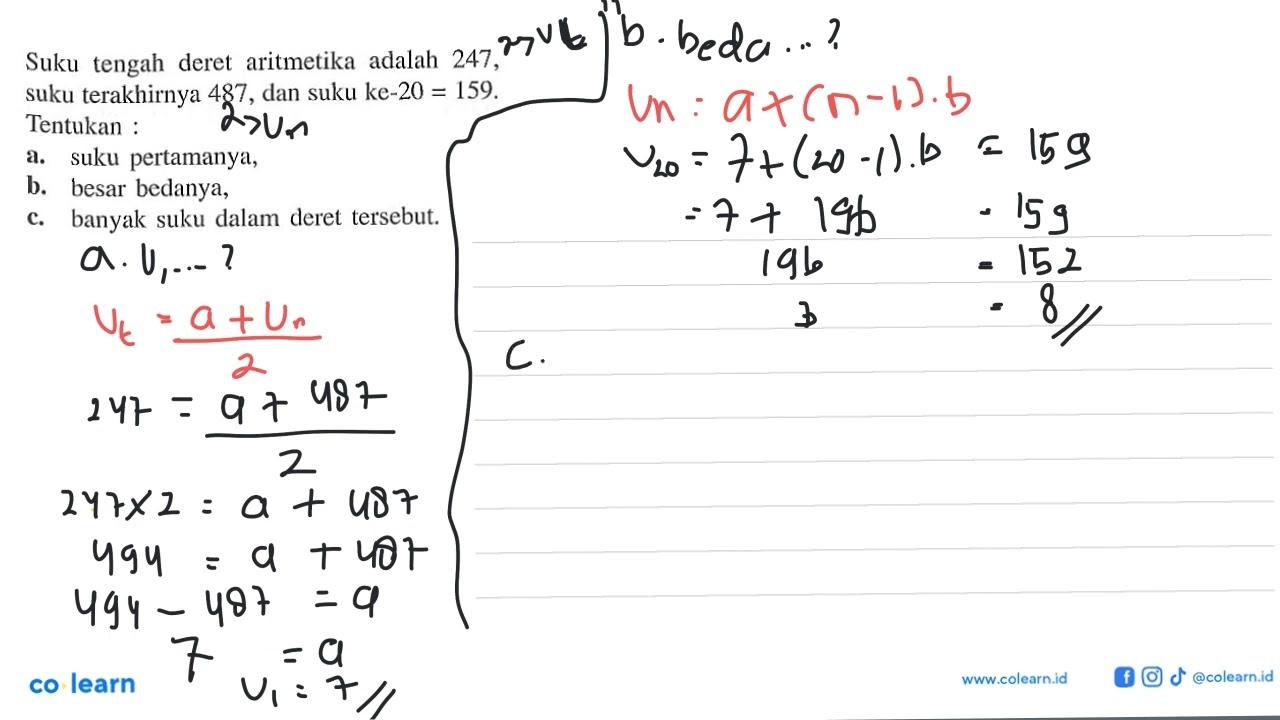 Suku tengah deret aritmetika adalah 247, → Ut
suku terakhirnya 487, dan suku ke-20 = 159.
→ Un
Tentukan :
a. suku pertamanya,
b. besar bedanya,
c. banyak suku dalam deret tersebut.
a. U1 ... ?
Ut = a + Un
2
247 = a + 487
2
247 x 2 = a + 487
494 = a + 487
494 - 487 = a
7 = a
U1 = 7 //
b. beda ... ?
Un = a + (n-1).b
U20 = 7 + (20-1).b = 159
= 7 + 19b = 159
19b = 152
b = 8 //
C.
co·learn
www.colearn.id
@colearn.id